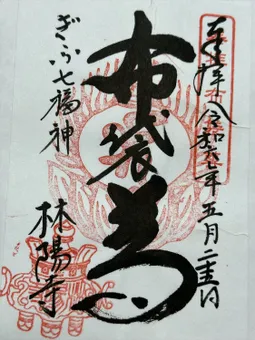 奉拝 令和六年五月二十三日
布袋尊
ぎふ七福神
林陽寺